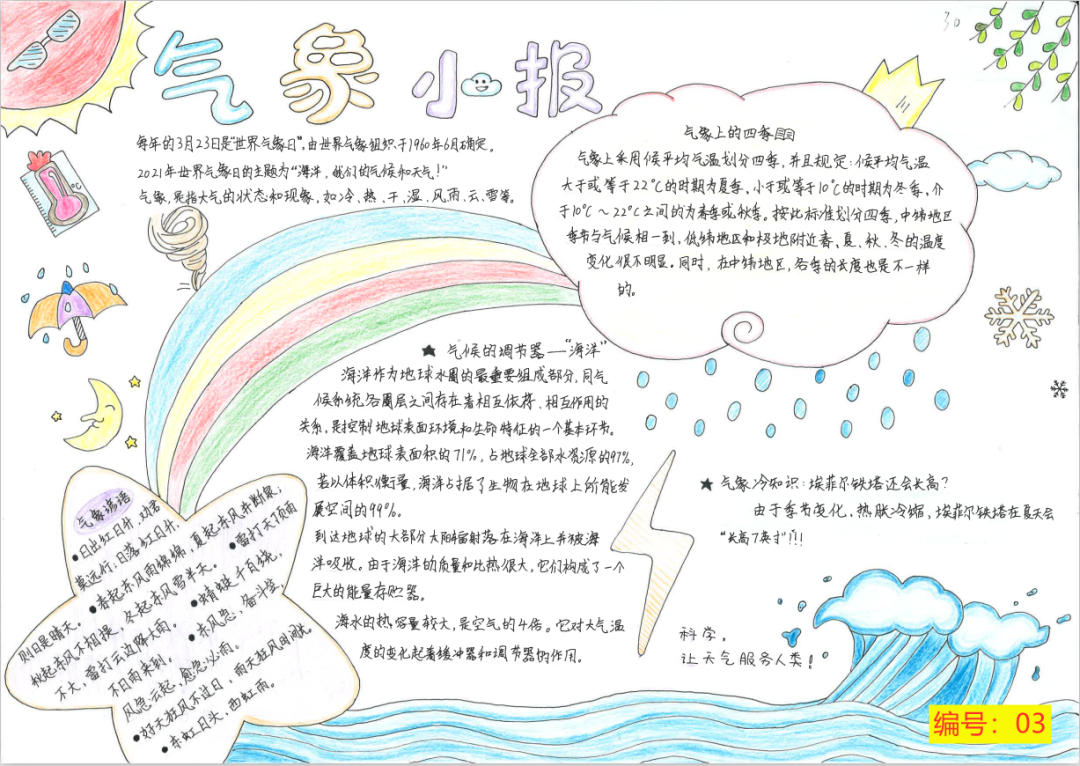 气象小报
30
每年的3月23日是"世界气象日",由世界气象组织于1960年6月确定。
2021年世界气象日的主题为"海洋,我们的气候和天气!"
气象,是指大气的状态和现象,如冷、热、干、湿、风、雨、云、雪等。
℃
气象上的四季
气象上采用候平均气温划分四季,并且规定:候平均气温
大于或等于22℃的时期为夏季,小于或等于10℃的时期为冬季,介
于10℃~22℃之间的为春季或秋季。按此标准划分四季,中纬地区
季节与气候相一到,低纬地区和极地附近春、夏、秋、冬的温度
变化很不明显。同时,在中纬地区,各季的长度也是不一样
的。
★ 气候的调节器——"海洋"
海洋作为地球水圈的最重要组成部分,同气
候系统各圈层之间存在着相互依存、相互作用的
关系,是控制地球表面环境和生命特征的一个基本环节。
海洋覆盖地球表面积的71%,占地球全部水资源的97%,
若以体积衡量,海洋占据了生物在地球上所能发
展空间的99%。
到达地球的大部分太阳辐射落在海洋上并被海
洋吸收。由于海洋的质量和比热很大,它们构成了一个
巨大的能量存贮器。
海水的热容量较大,是空气的4倍。它对大气温
度的变化起着缓冲器和调节器的作用。
★ 气象冷知识:埃菲尔铁塔还会长高?
由于季节变化,热胀冷缩,埃菲尔铁塔在夏天会
"长高7英寸"!!!
科学,
让天气服务人类!
气象谚语
•日出红日升,劝君
莫远行;日落红日升,
则日是晴天。
•春起东风雨绵绵,夏起东风井断泉;
秋起东风不相提,冬起东风雪半天。
•雷打天顶雨
不大,雷打云边降大雨。
•蜻蜓千百绕,
不日雨来到。
•东风急,备斗笠,
风急云起,愈急必雨。
•好天狂风不过日,雨天狂风时间长。
•东虹日头,西虹雨。
编号:03